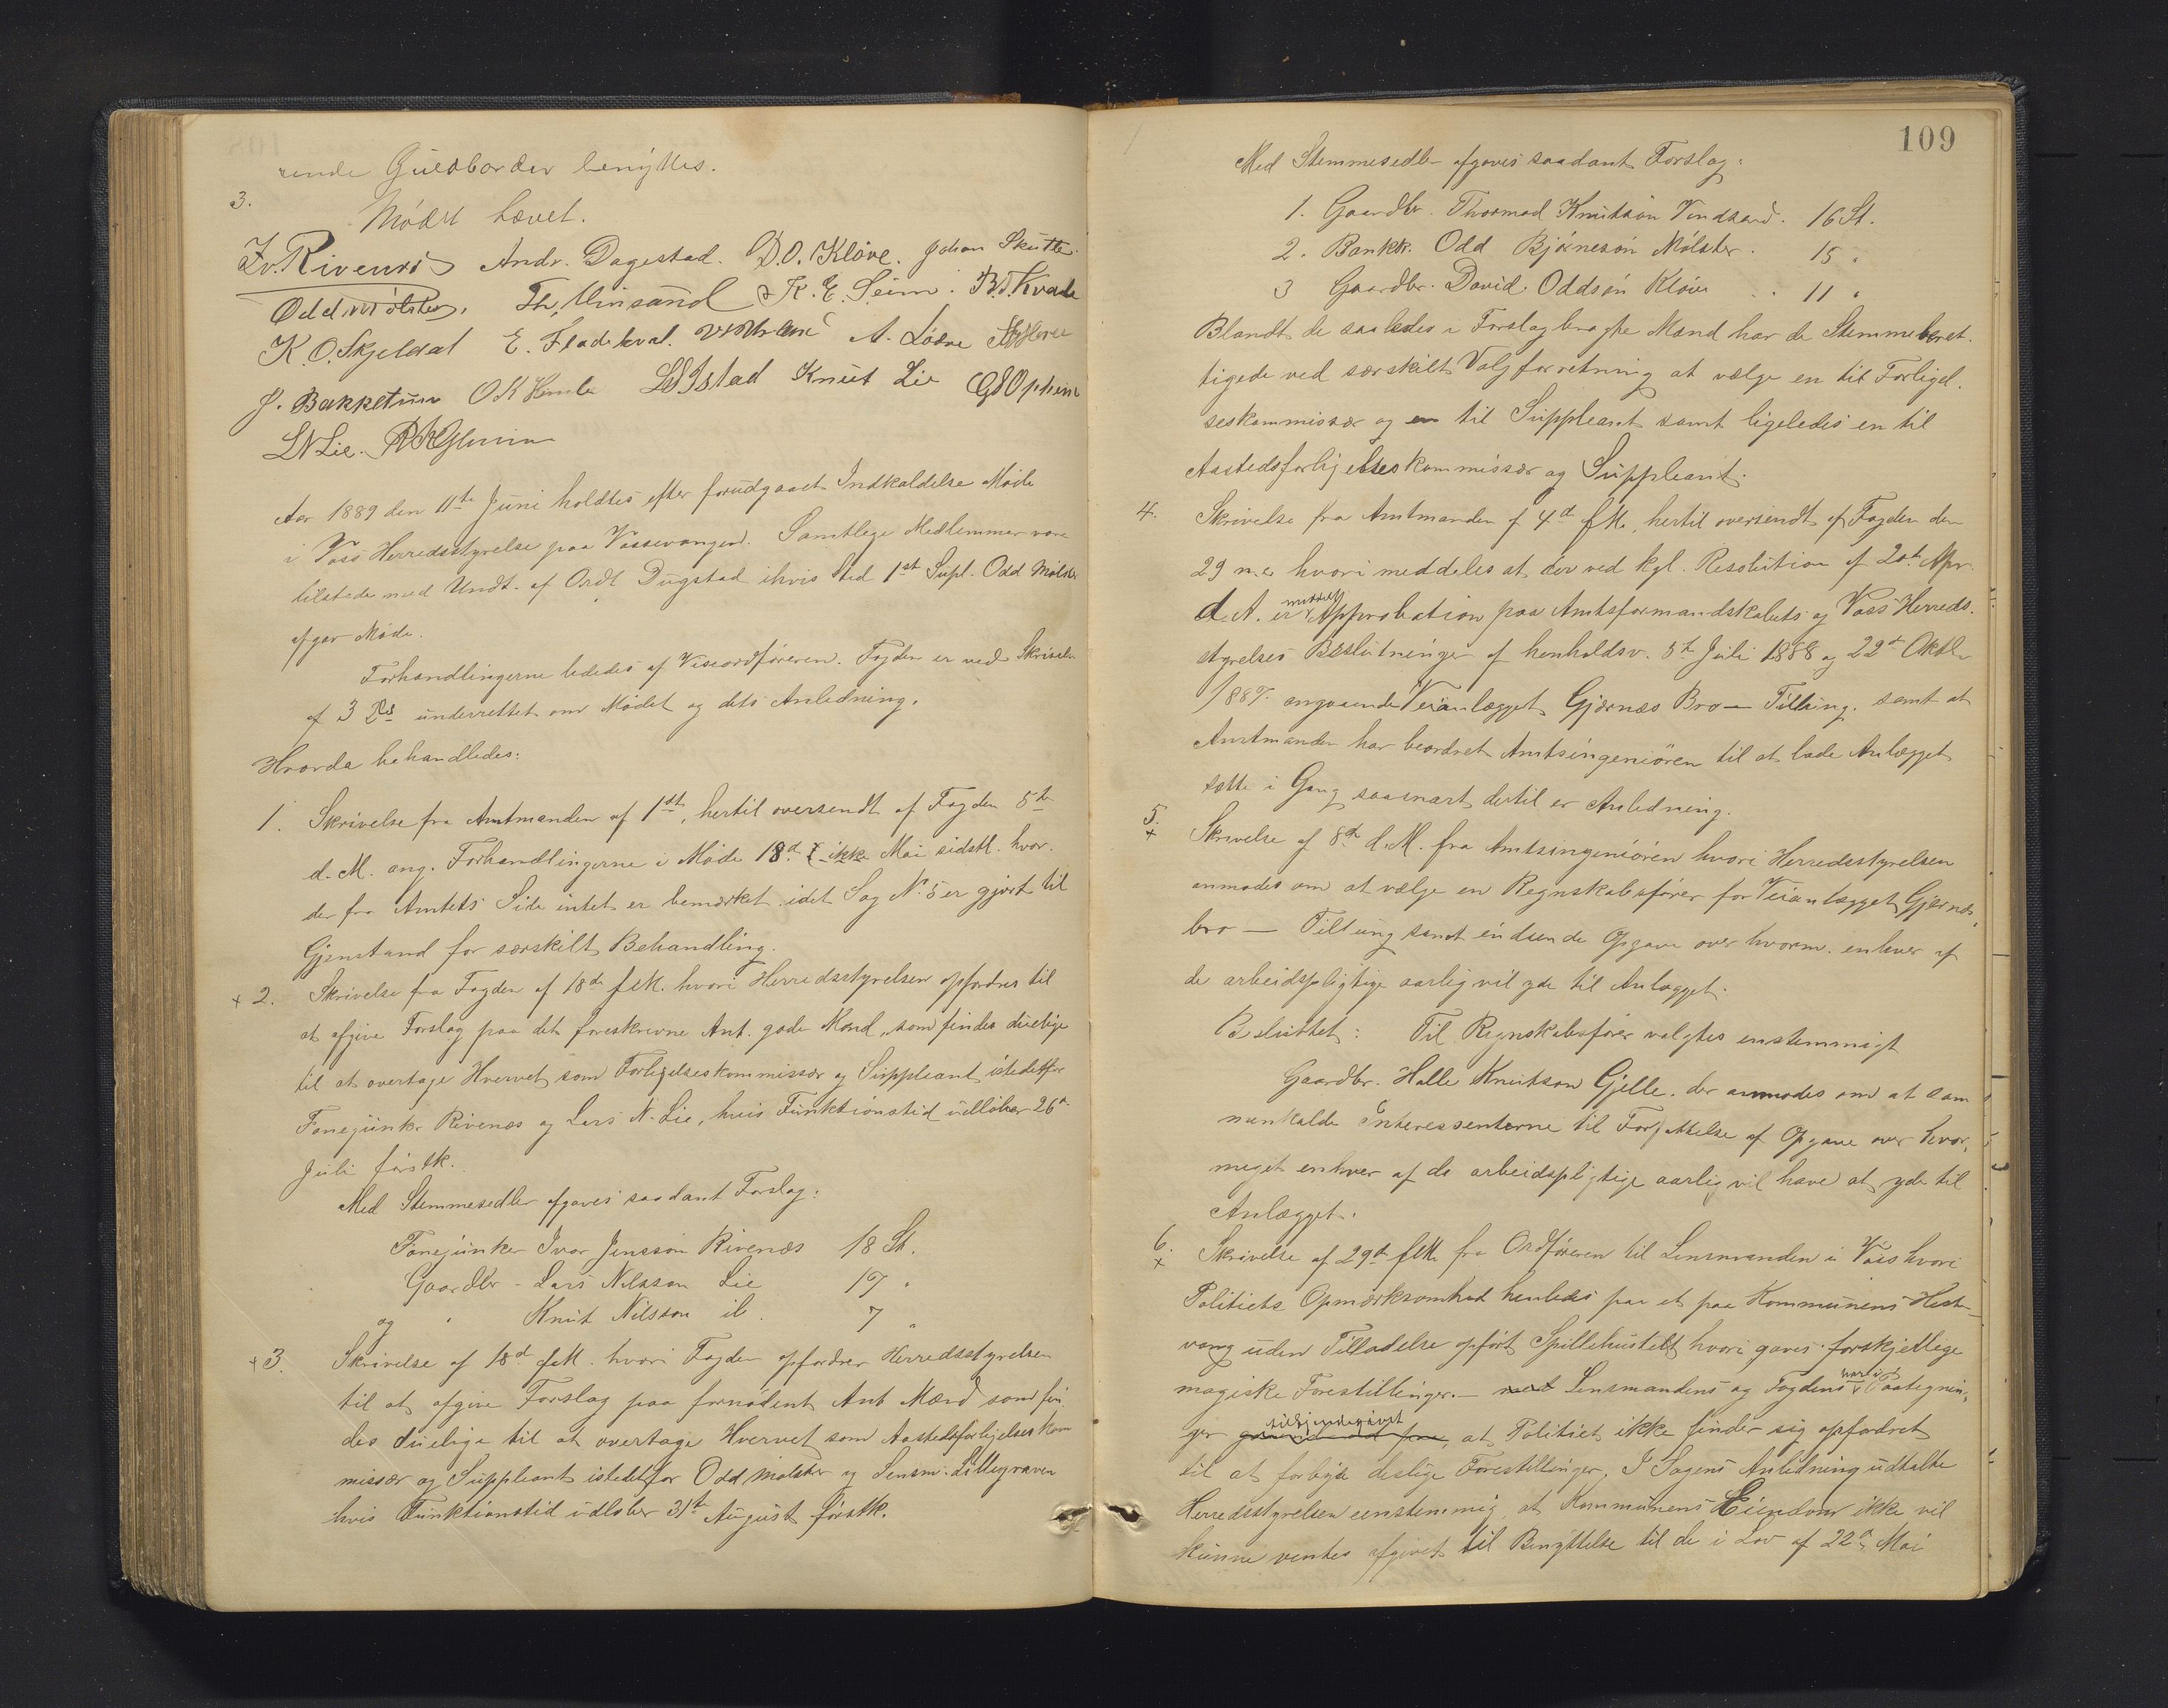 rende Guldborder benyttes.
3.
Mødet hævet.
Iv. Rivenæs Andr. Dagestad. D. O. Kløve. Johan Skutle.
Odd Mølster. Th. Vinsand K. E. Seim. B. T. Kvale
K. O. Skjeldal E. Fladekval. A. Løene
J. Bakketun O K Himle Istad Knut Lie
L N Lie.
Aar 1889 den 11te Juni holdtes efter forudgaaet Indkaldelse Møde
i Voss Herredsstyrelse paa Vossevangen. Samtlige Medlemmer vare
tilstede med Undt. af Ordf. Dugstad ihvis Sted 1st Supl. Odd Mølster
afgav Møde.
Forhandlingerne lededes af Viseordføreren. Fogden er ved Skrivelse
af 3 ds underrettet om Mødet og dets Anledning.
Hvorda behandledes:
1. Skrivelse fra Amtmanden af 1st, hertil oversendt af Fogden 5te
d. M. ang. Forhandlingerne i Møde 18d ikke Mai sidstl. hvor-
der fra Amtets Side intet er bemærket idet Sag N. 5 er gjort til
Gjenstand for særskilt Behandling.
+ 2. Skrivelse fra Fogden af 18de f. M. hvori Herredsstyrelsen opfordres til
at afgive Forslag paa det foreskrevne Ant. gode Mænd, som findes duelige
til at overtage Hvervet som Forligelseskommissær og Suppleant istedetfor
Fanejunker Rivenæs og Lars N. Lie, hvis Funktionstid udløber 26d
Juli førstk.
Med Stemmesedler afgaves saadant Forslag:
Fanejunker Ivar Jensson Rivenæs 18 St.
Gaardbr - Lars Nilsson Lie 17 "
og " Knut Nilsson ib. 7 "
+ 3. Skrivelse af 18d f. M. hvori Fogden opfordrer Herredsstyrelsen
til at afgive Forslag paa fornødent Ant Mænd som fin-
des duelige til at overtage Hvervet som Aastedsforligelseskom
missær og Suppleant istedetfor Odd Mølster og Lensm. Lillegraven
hvis Funktionstid udløber 31te August førstk.
109
Med Stemmesedler afgaves saadant Forslag:
1. Gaardbr. Thormod Knutsøn Vindsand. 16 St.
2. Bankk. Odd Bjørnesøn Mølster. 15 "
3 Gaardbr. David Oddsøn Kløve .. 11 "
Blandt de saaledes i Forslag bragte Mænd har de Stemmeberet-
tigede ved særskilt Valgforretning at vælge en til Forligel-
seskommissær og en til Suppleant samt ligeledes en til
Aastedsforligelseskommissær og Suppleant.
4. Skrivelse fra Amtmanden af 4de f. M., hertil oversendt af Fogden den
29 n. e. hvori meddeles at der ved kgl. Resolution af 20d Apr.
d. A. er meddelt Approbation paa Amtsformandskabets og Voss Herreds-
styrelses Beslutninger af henholdsv. 5te Juli 1888 og 22d Oktbr
1887 angaaende Veianlægget Gjernæs Bro — Tillung. samt at
Amtmanden har beordret Amtsingeniøren til at lade Anlægget
sætte i Gang saasnart dertil er Anledning.
5.
+ Skrivelse af 8de d. M. fra Amtsingeniøren hvori Herredsstyrelsen
anmodes om at vælge en Regnskabsfører for Veianlægget Gjernæs-
bro — Tillung samt indsende Opgave over hvorm. enhver af
de arbeidspligtige aarlig vil yde til Anlægget.
Besluttet: Til Regnskabsfører valgtes enstemmigt
Gaardbr. Halle Knutson Gjelle. der anmodes om at sam
menkalde Interessenterne til Forfattelse af Opgave over hvor-
meget enhver af de arbeidspligtige aarlig vil have at yde til
Anlægget.
6.
+ Skrivelse af 29de f. M. fra Ordføreren til Lensmanden i Voss hvori
Politiets Opmærksomhed henledes paa et paa Kommunens Heste-
vang uden Tilladelse opført Spillehustelt hvori gaves forskjellige
magiske Forestillinger. — med Lensmandens og Fogdens hvori Paategnin-
ger tilkjendegivet at Politiet ikke finder sig opfordret
til at forbyde deslige Forestillinger. I Sagens Anledning udtalte
Herredsstyrelsen eenstemmig, at Kommunens Eiendom ikke vil
kunne ventes afgivet til Benyttelse til de i Lov af 22d Mai